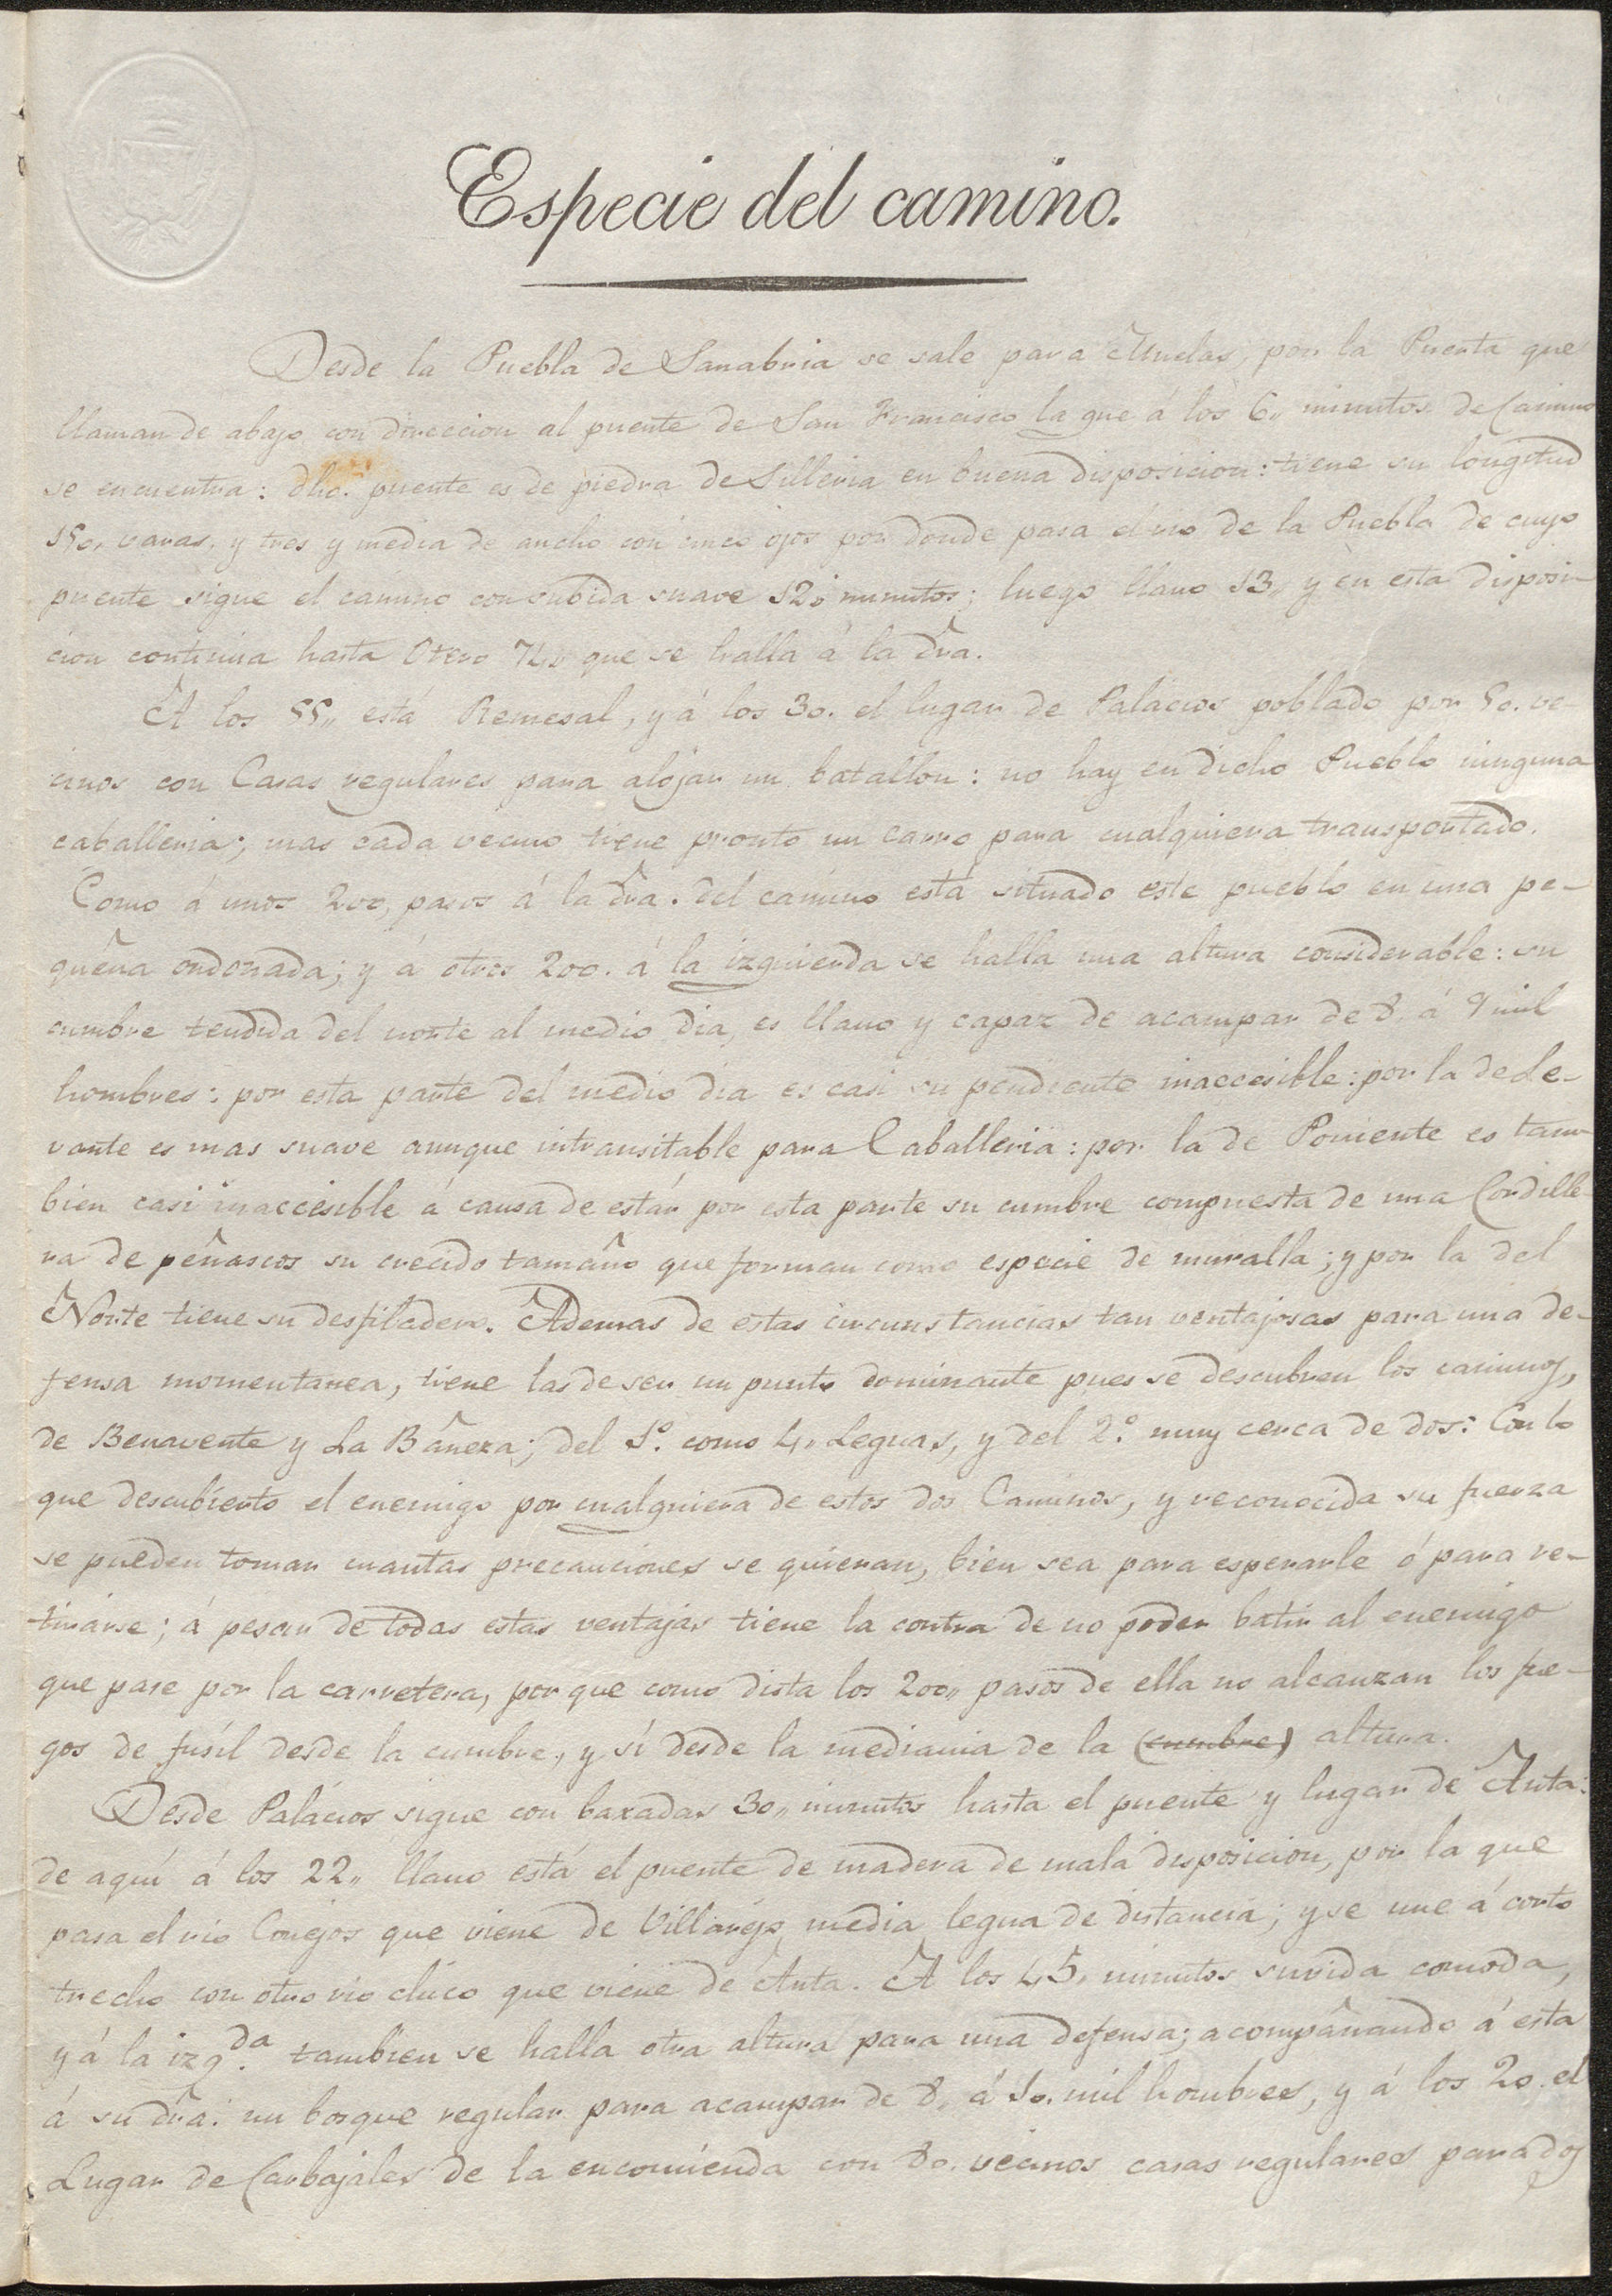 Especie del camino.
Desde la Puebla de Sanabria se sale para Muelas, por la Puerta que
llaman de abajo con direccion al puente de San Francisco la que á los 6,, minutos de Camino
se encuentra: dho. puente es de piedra de Silleria en buena disposicion: tiene su longitud
150, varas, y tres y media de ancho con cinco ojos por donde pasa el rio de la Puebla de cuyo
puente sigue el camino con subida suave 12,, minutos; luego llano 13,, y en esta disposi-
cion continua hasta Otero que se halla á la dra.
A los 55,, está Remesal, y á los 30. el lugar de Palacios poblado por 50. ve-
cinos con Casas regulares para alojar un batallon: no hay en dicho Pueblo ninguna
caballeria; mas cada vecino tiene pronto un carro para cualquiera transportado.
Como á unos 200, pasos á la dra. del camino está situado este pueblo en una pe-
queña ondonada; y á otros 200. á la izquierda se halla una altura considerable: su
cumbre tendida del norte al medio dia, es llano y capaz de acampar de 8. á 9 mil
hombres: por esta parte del medio dia es casi su pendiente inaccesible: por la de Le-
vante es mas suave aunque intransitable para Caballeria: por la de Poniente es tam-
bien casi inaccesible á causa de estár por esta parte su cumbre compuesta de una Cordille-
ra de peñascos su crecido tamaño que forman como especie de muralla; y por la del
Norte tiene su desfiladero. Ademas de estas circunstancias tan ventajosas para una de-
fensa momentanea, tiene las de ser un punto dominante pues se descubren los caminos,
de Benavente y La Bañeza; del 1º. como 4,, Leguas, y del 2º. muy cerca de dos: Con lo
que descubierto el enemigo por cualquiera de estos dos Caminos, y reconocida su fuerza
se pueden tomar cuantas precauciones se quieran, bien sea para esperarle ó para re-
tirarse; á pesar de todas estas ventajas tiene la contra de no poder batir al enemigo
que pase por la carretera, por que como dista los 200,, pasos de ella no alcanzan los fue-
gos de fusil desde la cumbre, y sí desde la mediania de la (cumbre) altura.
Desde Palacios sigue con baxadas 30,, minutos hasta el puente y lugar de Anta:
de aquí á los 22,, llano está el puente de madera de mala disposicion, por la que
pasa el rio Conejos que viene de Villarejo media legua de distancia; y se une á corto
trecho con otro rio chico que viene de Anta. A los 45, minutos suvida comoda,
y á la izq.da tambien se halla otra altura para una defensa; acompañando á esta
á su dra. un bosque regular para acampar de 8, á 10. mil hombres, y á los 20. el
Lugar de Carbajales de la encomienda con 80. vecinos casas regulares para dos